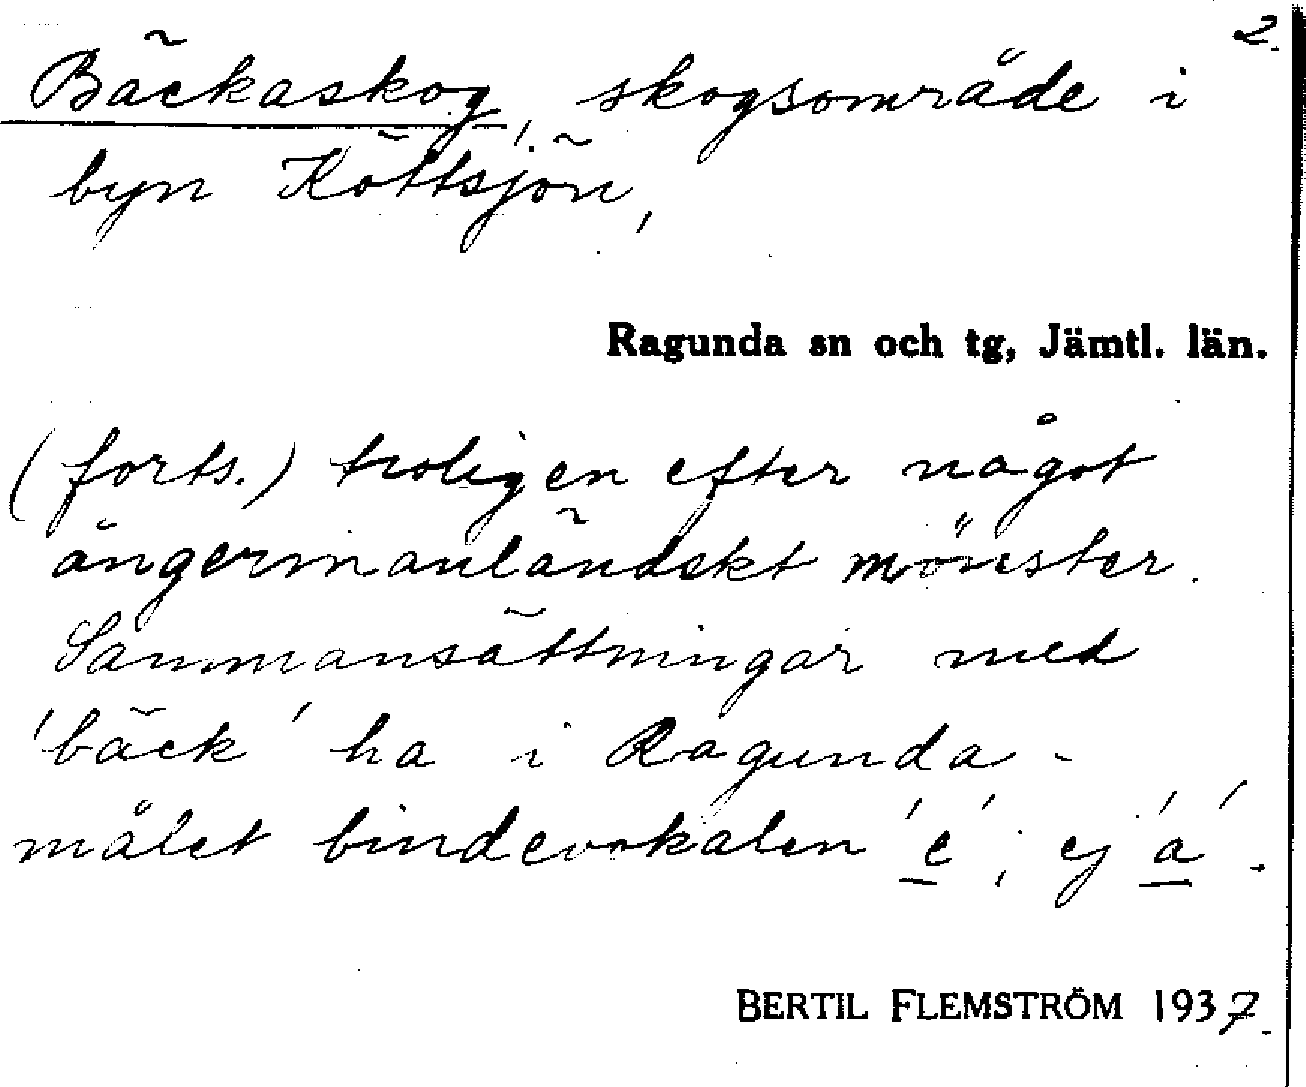 2.
Bäckaskog, skogsområde i
byn Köttsjön,
Ragunda sn och tg, Jämtl. län.
(forts.) troligen efter något
ångermanländskt mönster.
Sammansättningar med
'bäck' ha i Ragunda-
målet bindevokalen 'e', ej 'a'.
BERTIL FLEMSTRÖM 1937.